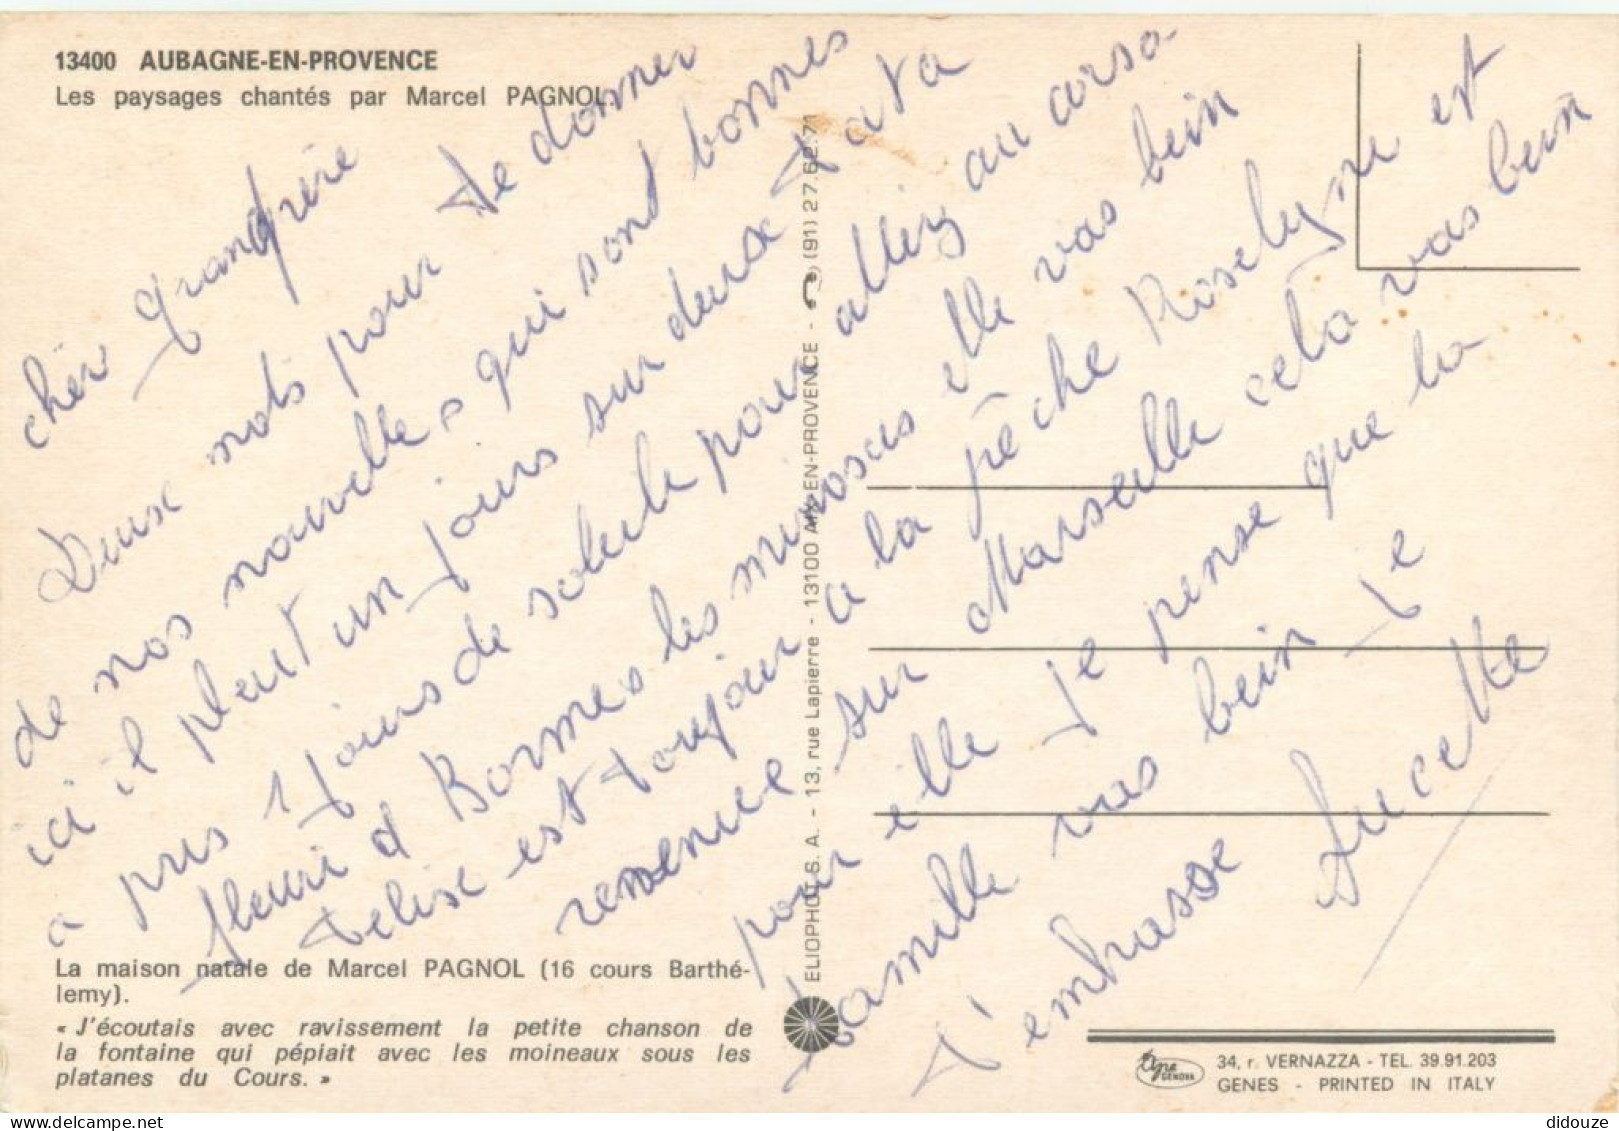 13400 AUBAGNE-EN-PROVENCE
Les paysages chantés par Marcel PAGNOL.
cher grandpère
Deux mots pour te donner
de nos nouvelles qui sont bonnes
ici il pleut un jours sur deux tata
a pris 1 jours de soleil pour allez au corso
fleuri d Bormes les mimosas elle vas bein
Felix est toujour a la pêche Roselyne est
revenue sur Marseille cela vas bein
pour elle je pense que la
famille vas bein je
t'embrasse Lucette
La maison natale de Marcel PAGNOL (16 cours Barthé-
lemy).
« J'écoutais avec ravissement la petite chanson de
la fontaine qui pépiait avec les moineaux sous les
platanes du Cours. »
ELIOPHOT S. A. - 13, rue Lapierre - 13100 AIX-EN-PROVENCE - (91) 27.62.71
GENOVA
34, r. VERNAZZA - TEL. 39.91.203
GENES - PRINTED IN ITALY
didouze